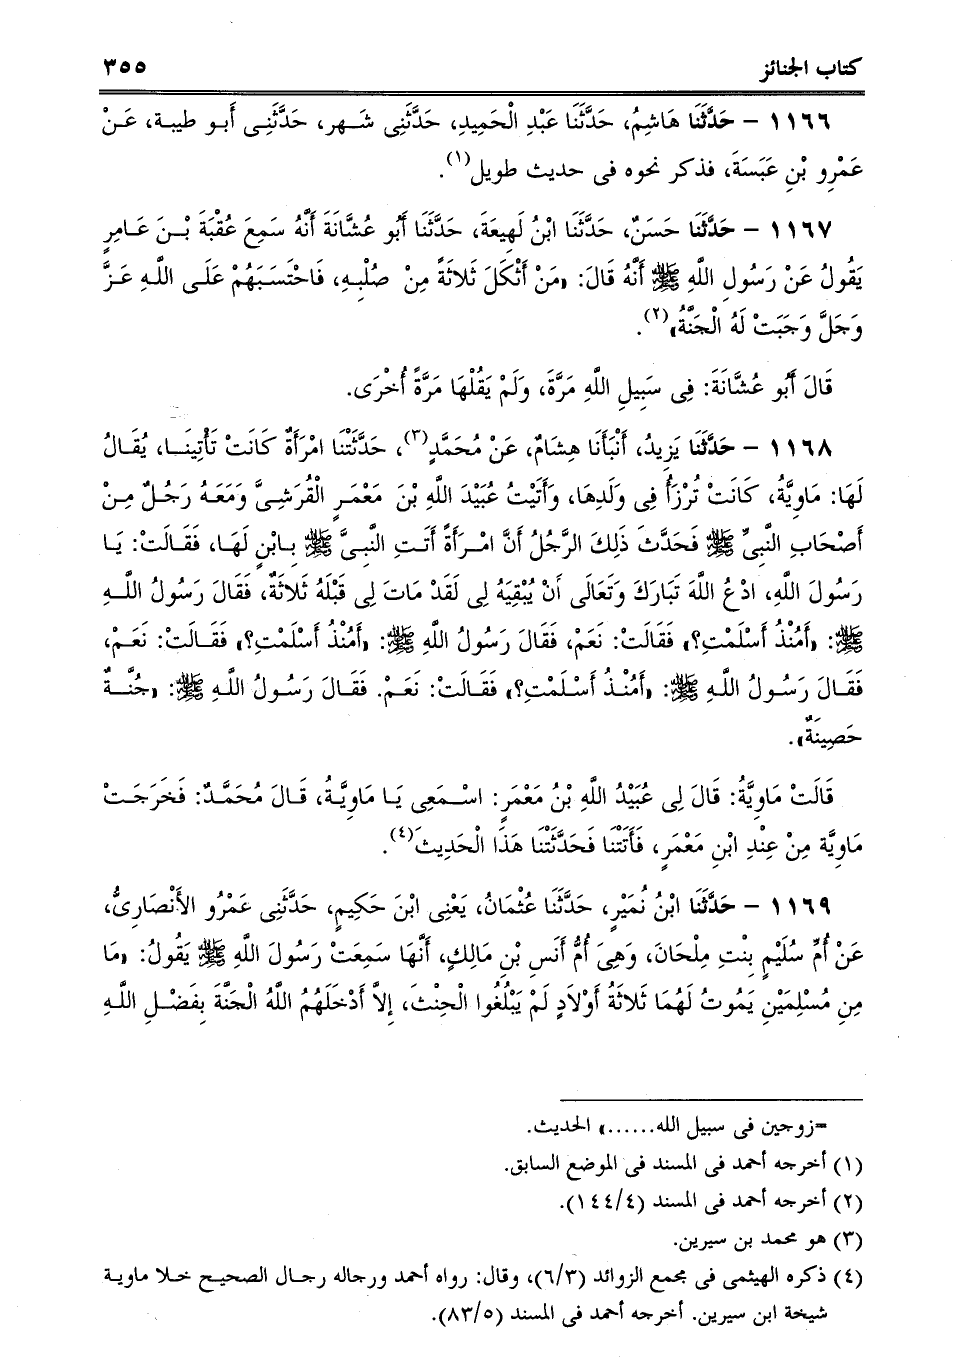 كتاب الجنائز ٣٥٥
١١٦٦ - حَدَّثَنَا هَاشِمُ، حَدَّثَنَا عَبْدِ الْحَمِيدِ، حَدَّثَنِى شَهر، حَدَّثَنِى أبو طيبة، عَنْ
عَمْرِو بْنِ عَبَسَةَ، فذكر نحوه فى حديث طويل(١).
١١٦٧ - حَدَّثَنَا حَسَنٌ، حَدَّثَنَا ابْنُ لَهِيعَةَ، حَدَّثَنَا أَبُو عُشَّانَةَ أَنَّهُ سَمِعَ عُقْبَةَ بْنَ عَامِرٍ
يَقُولُ عَنْ رَسُولِ اللَّهِ ﷺ أَنَّهُ قَالَ: «مَنْ أَثْكَلَ ثَلاثَةً مِنْ صُلْبِهِ، فَاحْتَسَبَهُمْ عَلَى اللَّهِ عَزَّ
وَجَلَّ وَجَبَتْ لَهُ الْجَنَّةُ»(٢).
قَالَ أَبُو عُشَّانَةَ: فِى سَبِيلِ اللَّهِ مَرَّةً، وَلَمْ يَقُلْهَا مَرَّةً أُخْرَى.
١١٦٨ - حَدَّثَنَا يَزِيدُ، أَنْبَأَنَا هِشَامٌ، عَنْ مُحَمَّدٍ(٣)، حَدَّثَتْنَا امْرَأَةٌ كَانَتْ تَأْتِينَا، يُقَالُ
لَهَا: مَاوِيَّةُ، كَانَتْ تُرْزَأُ فِى وَلَدِهَا، وَأَتَيْتُ عُبَيْدَ اللَّهِ بْنَ مَعْمَرٍ الْقُرَشِىَّ وَمَعَهُ رَجُلٌ مِنْ
أَصْحَابِ النَّبِىِّ ﷺ فَحَدَّثَ ذَلِكَ الرَّجُلُ أَنَّ امْرَأَةً أَتَتِ النَّبِىَّ ﷺ بِابْنٍ لَهَا، فَقَالَتْ: يَا
رَسُولَ اللَّهِ، ادْعُ اللَّهَ تَبَارَكَ وَتَعَالَى أَنْ يُبْقِيَهُ لِى لَقَدْ مَاتَ لِى قَبْلَهُ ثَلاثَةٌ، فَقَالَ رَسُولُ اللَّهِ
ﷺ: «أَمُنْذُ أَسْلَمْتِ؟» فَقَالَتْ: نَعَمْ، فَقَالَ رَسُولُ اللَّهِ ﷺ: «أَمُنْذُ أَسْلَمْتِ؟» فَقَالَتْ: نَعَمْ،
فَقَالَ رَسُولُ اللَّهِ ﷺ: «أَمُنْذُ أَسْلَمْتِ؟» فَقَالَتْ: نَعَمْ. فَقَالَ رَسُولُ اللَّهِ ﷺ: «جُنَّةٌ
حَصِينَةٌ».
قَالَتْ مَاوِيَّةُ: قَالَ لِى عُبَيْدُ اللَّهِ بْنُ مَعْمَرٍ: اسْمَعِى يَا مَاوِيَّةُ، قَالَ مُحَمَّدٌ: فَخَرَجَتْ
مَاوِيَّة مِنْ عِنْدِ ابْنِ مَعْمَرٍ، فَأَتَتْنَا فَحَدَّثَتْنَا هَذَا الْحَدِيثَ(٤).
١١٦٩ - حَدَّثَنَا ابْنُ نُمَيْرٍ، حَدَّثَنَا عُثْمَانُ، يَعْنِى ابْنَ حَكِيمٍ، حَدَّثَنِى عَمْرُو الأَنْصَارِىُّ،
عَنْ أُمِّ سُلَيْمٍ بِنْتِ مِلْحَانَ، وَهِىَ أُمُّ أَنَسِ بْنِ مَالِكٍ، أَنَّهَا سَمِعَتْ رَسُولَ اللَّهِ ﷺ يَقُولُ: «مَا
مِنِ مُسْلِمَيْنِ يَمُوتُ لَهُمَا ثَلاثَةُ أَوْلَادٍ لَمْ يَبْلُغُوا الْحِنْثَ، إِلاَّ أَدْخَلَهُمُ اللَّهُ الْجَنَّةَ بِفَضْلِ اللَّهِ
=زوجين فى سبيل الله......» الحديث.
(١) أخرجه أحمد فى المسند فى الموضع السابق.
(٢) أخرجه أحمد فى المسند (١٤٤/٤).
(٣) هو محمد بن سيرين.
(٤) ذكره الهيثمى فى مجمع الزوائد (٦/٣)، وقال: رواه أحمد ورجاله رجال الصحيح خلا ماوية
شيخة ابن سيرين. أخرجه أحمد فى المسند (٨٣/٥).